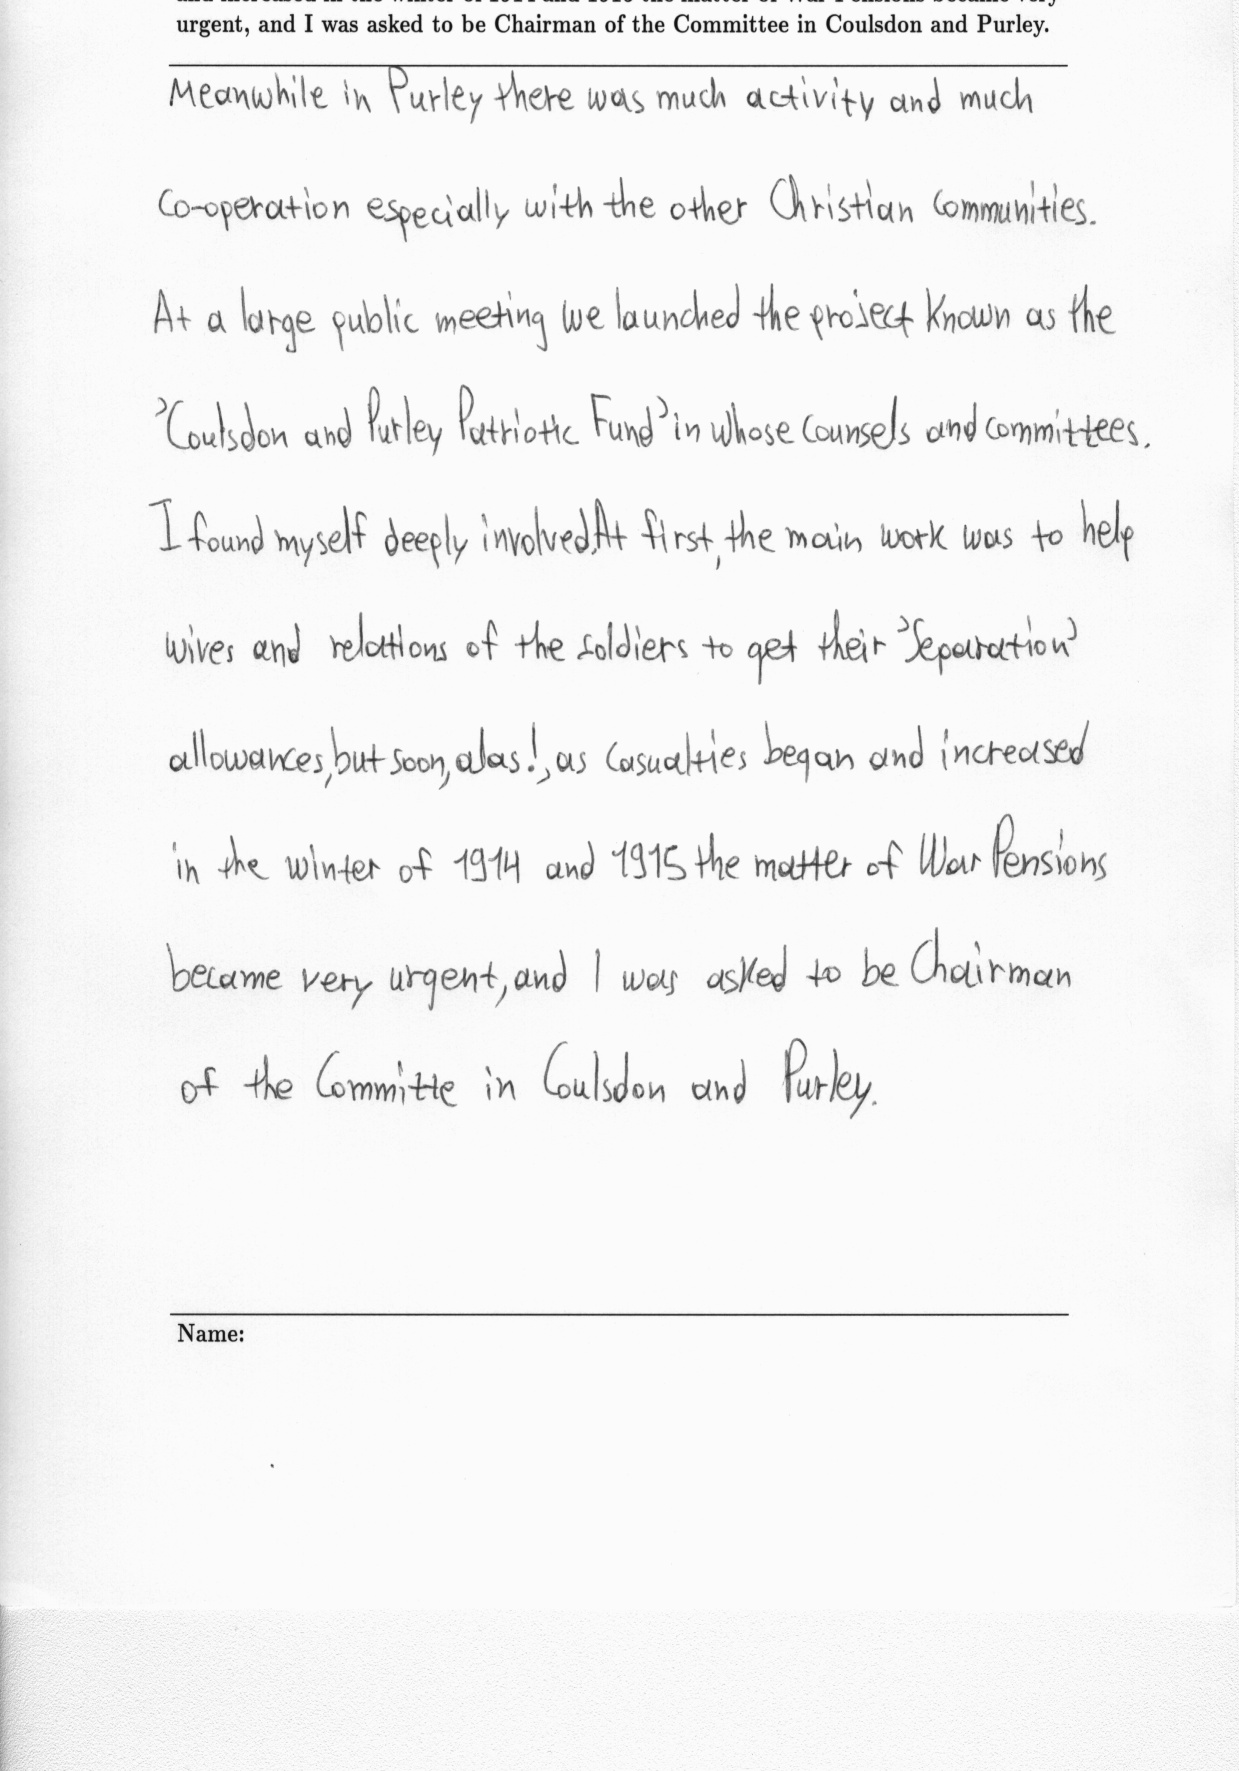 and increased in the winter of 1914 and 1915 the matter of War Pensions became very
urgent, and I was asked to be Chairman of the Committee in Coulsdon and Purley.
Meanwhile in Purley there was much activity and much
co-operation especially with the other Christian Communities.
At a large public meeting we launched the project known as the
'Coulsdon and Purley Patriotic Fund' in whose counsels and committees.
I found myself deeply involved. At first, the main work was to help
wives and relations of the soldiers to get their 'Separation'
allowances, but soon, alas!, as casualties began and increased
in the winter of 1914 and 1915 the matter of War Pensions
became very urgent, and I was asked to be Chairman
of the Committe in Coulsdon and Purley.
Name: